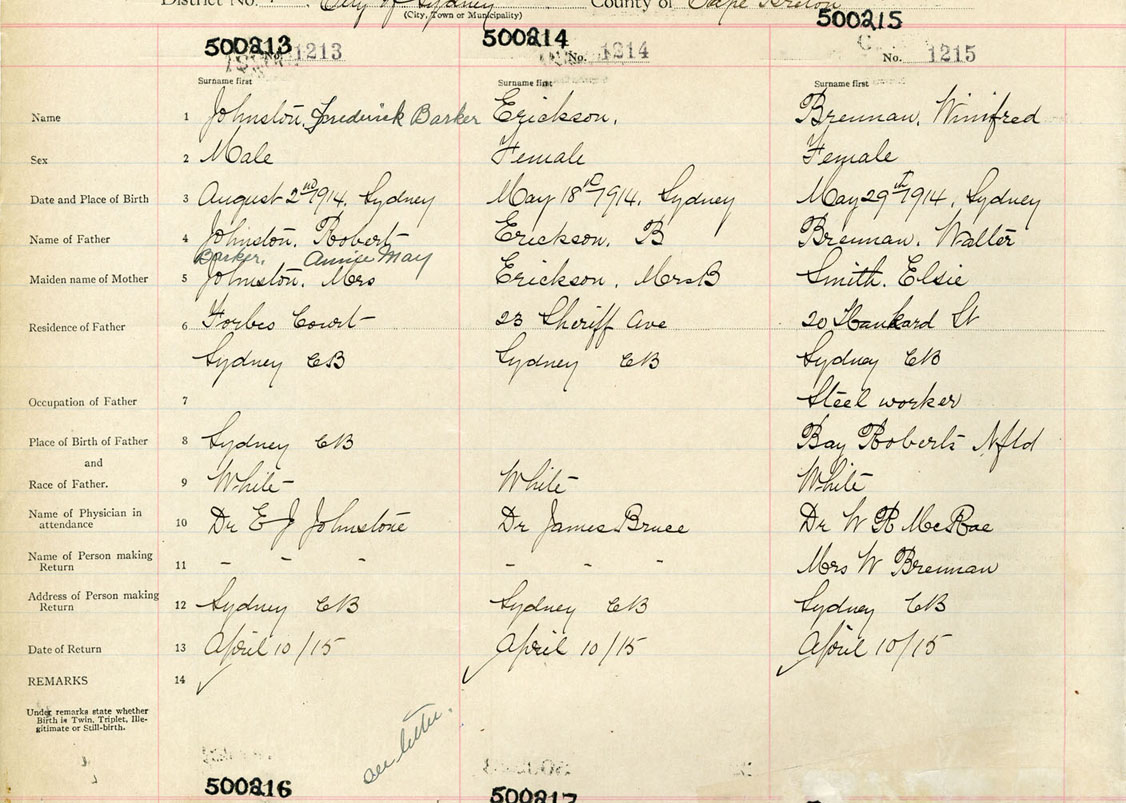 District No. City of Sydney County of Cape Breton
(City, Town or Municipality)
500213 500214 500215
No. 1213 No. 1214 No. 1215
Surname first Surname first Surname first
Name 1 Johnston, Frederick Barker Erickson, Brennan, Winifred
Sex 2 Male Female Female
Date and Place of Birth 3 August 2nd 1914, Sydney May 18th 1914, Sydney May 29th 1914, Sydney
Name of Father 4 Johnston, Robert Erickson, B Brennan, Walter
Barker, Annie May
Maiden name of Mother 5 Johnston, Mrs Erickson, Mrs B Smith, Elsie
Residence of Father 6 Forbes Court 23 Sheriff Ave 20 Hankard St
Sydney CB Sydney CB Sydney CB
Occupation of Father 7 Steel worker
Place of Birth of Father 8 Sydney CB Bay Roberts Nfld
and
Race of Father. 9 White White White
Name of Physician in
attendance 10 Dr E J Johnstone Dr James Bruce Dr W R McRae
Name of Person making
Return 11 - - - - - - Mrs W Brennan
Address of Person making
Return 12 Sydney CB Sydney CB Sydney CB
Date of Return 13 April 10/15 April 10/15 April 10/15
REMARKS 14
Under remarks state whether
Birth is Twin, Triplet, Ille-
gitimate or Still-birth.
see letter.
500216 500217